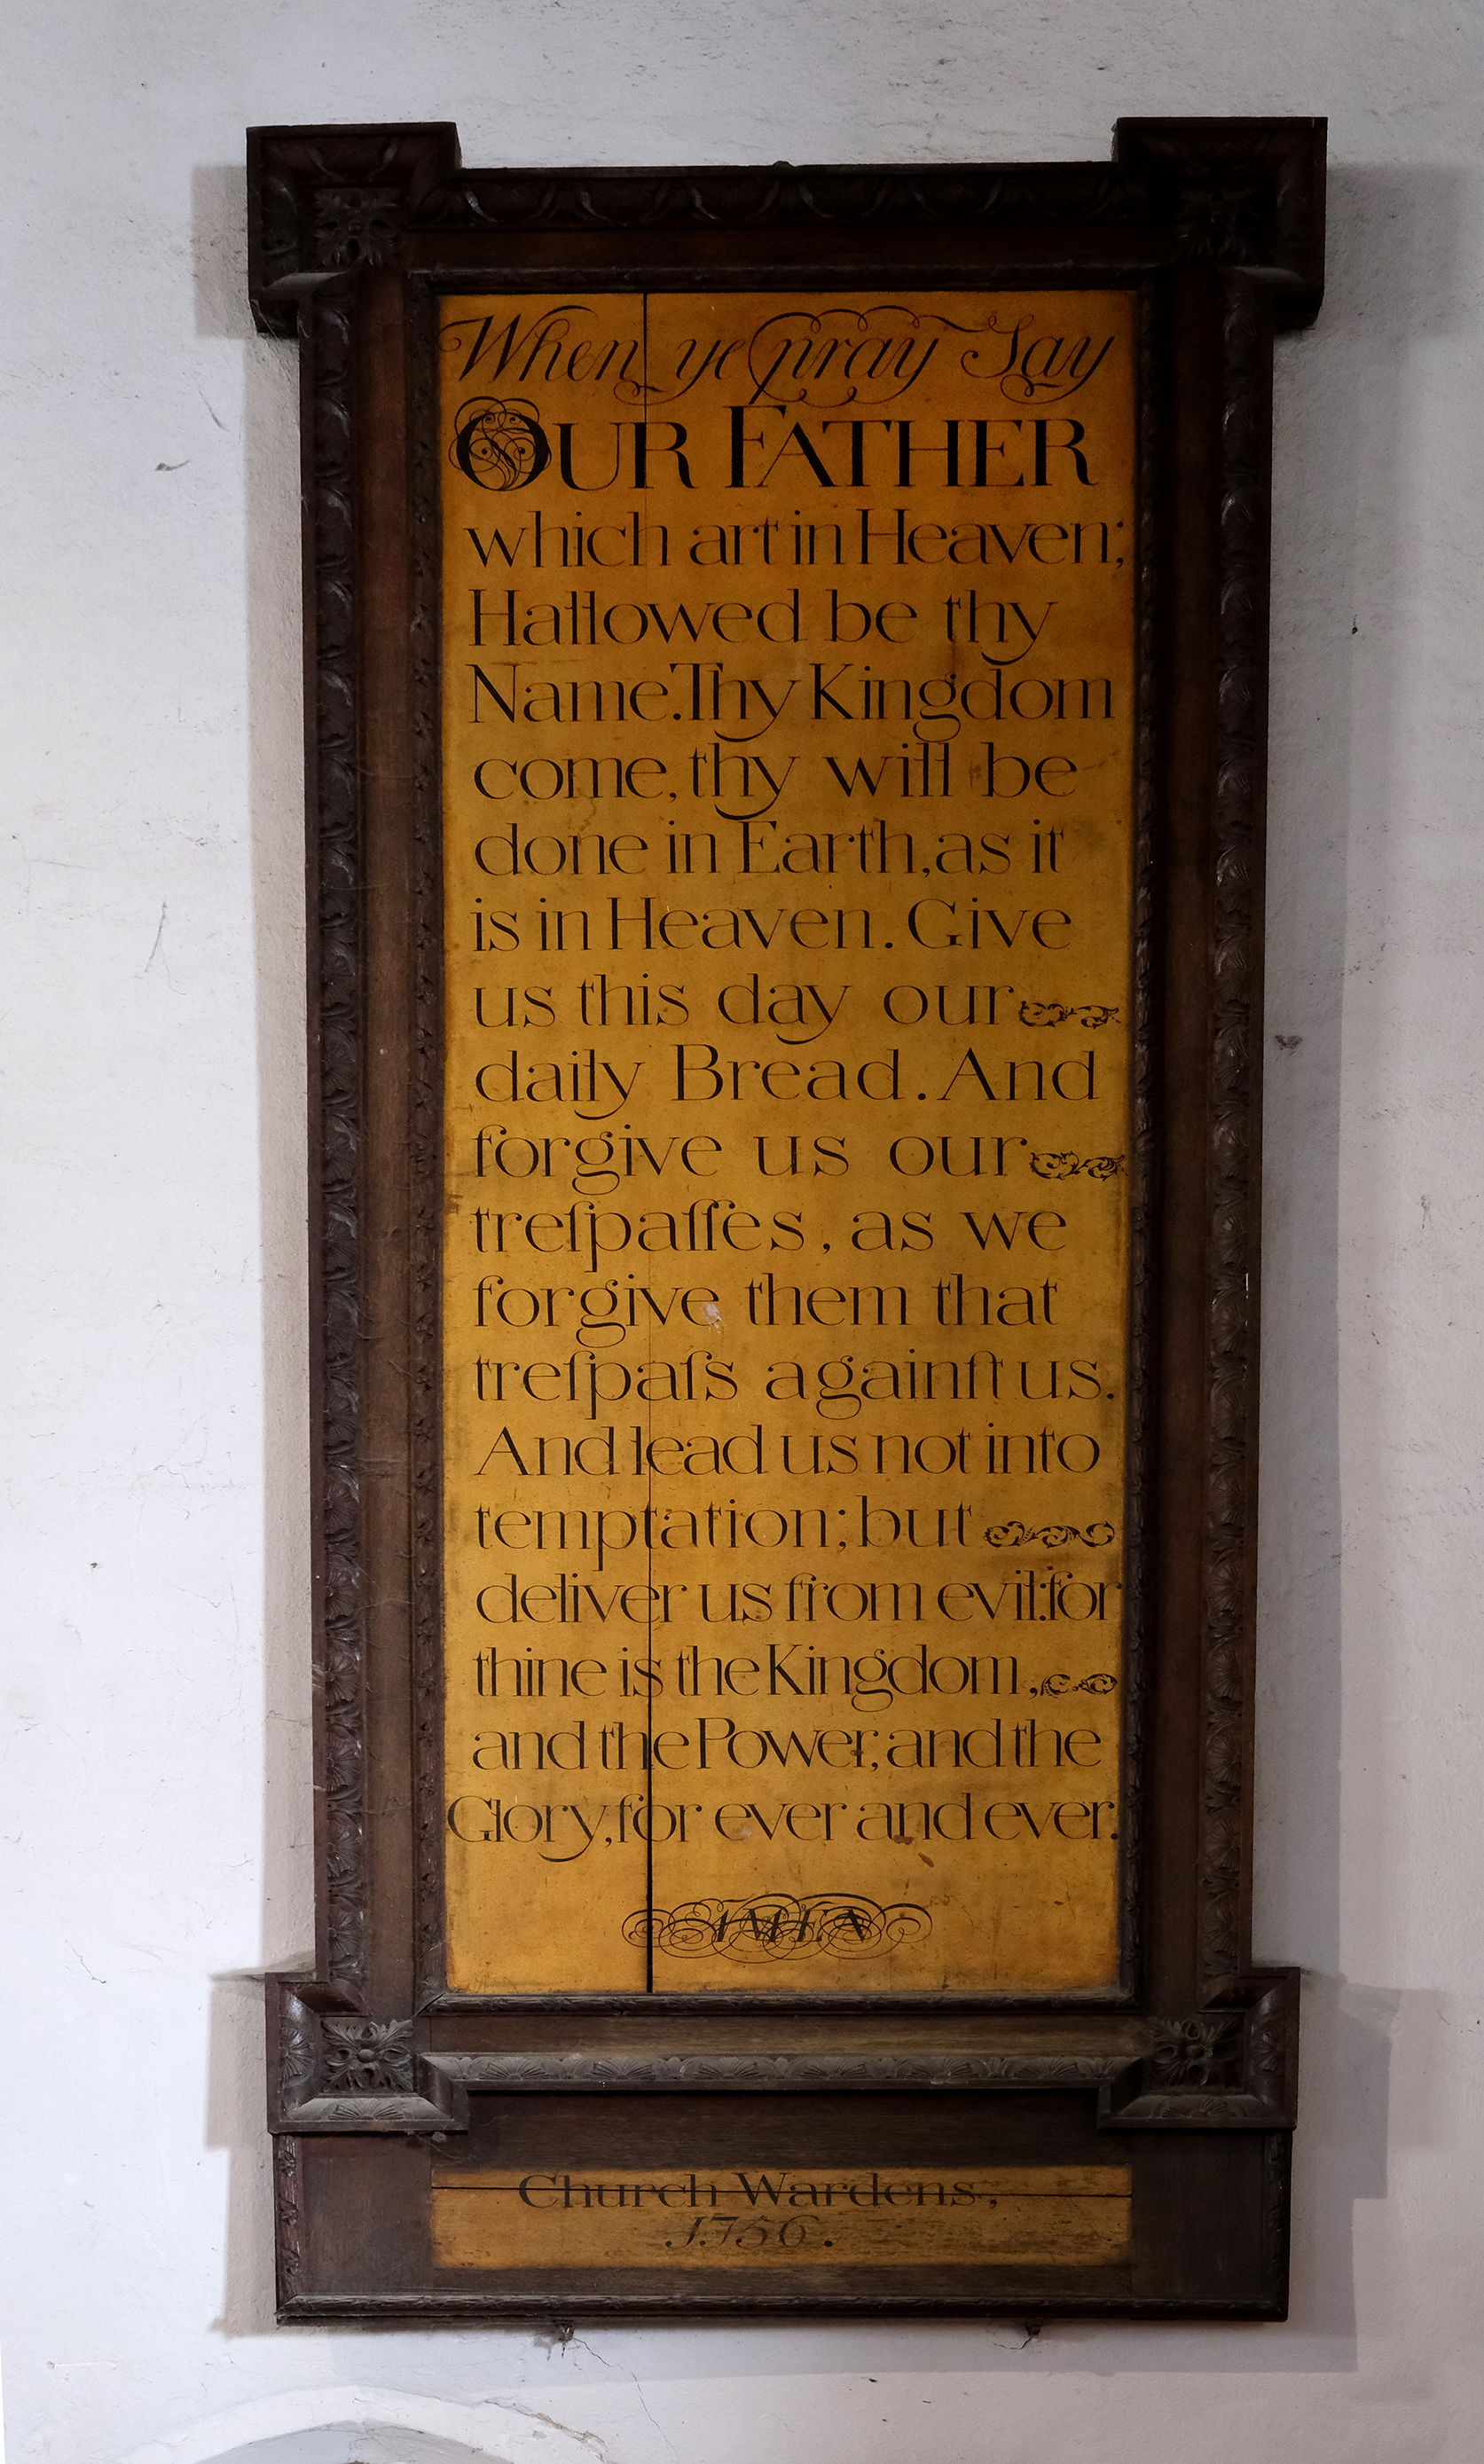 When ye pray Say
OUR FATHER
which art in Heaven;
Hallowed be thy
Name. Thy Kingdom
come, thy will be
done in Earth, as it
is in Heaven. Give
us this day our
daily Bread. And
forgive us our
treſpaſſes, as we
forgive them that
treſpaſs againſt us.
And lead us not into
temptation; but
deliver us from evil: for
thine is the Kingdom,
and the Power, and the
Glory, for ever and ever.
AMEN
Church Wardens,
1756.